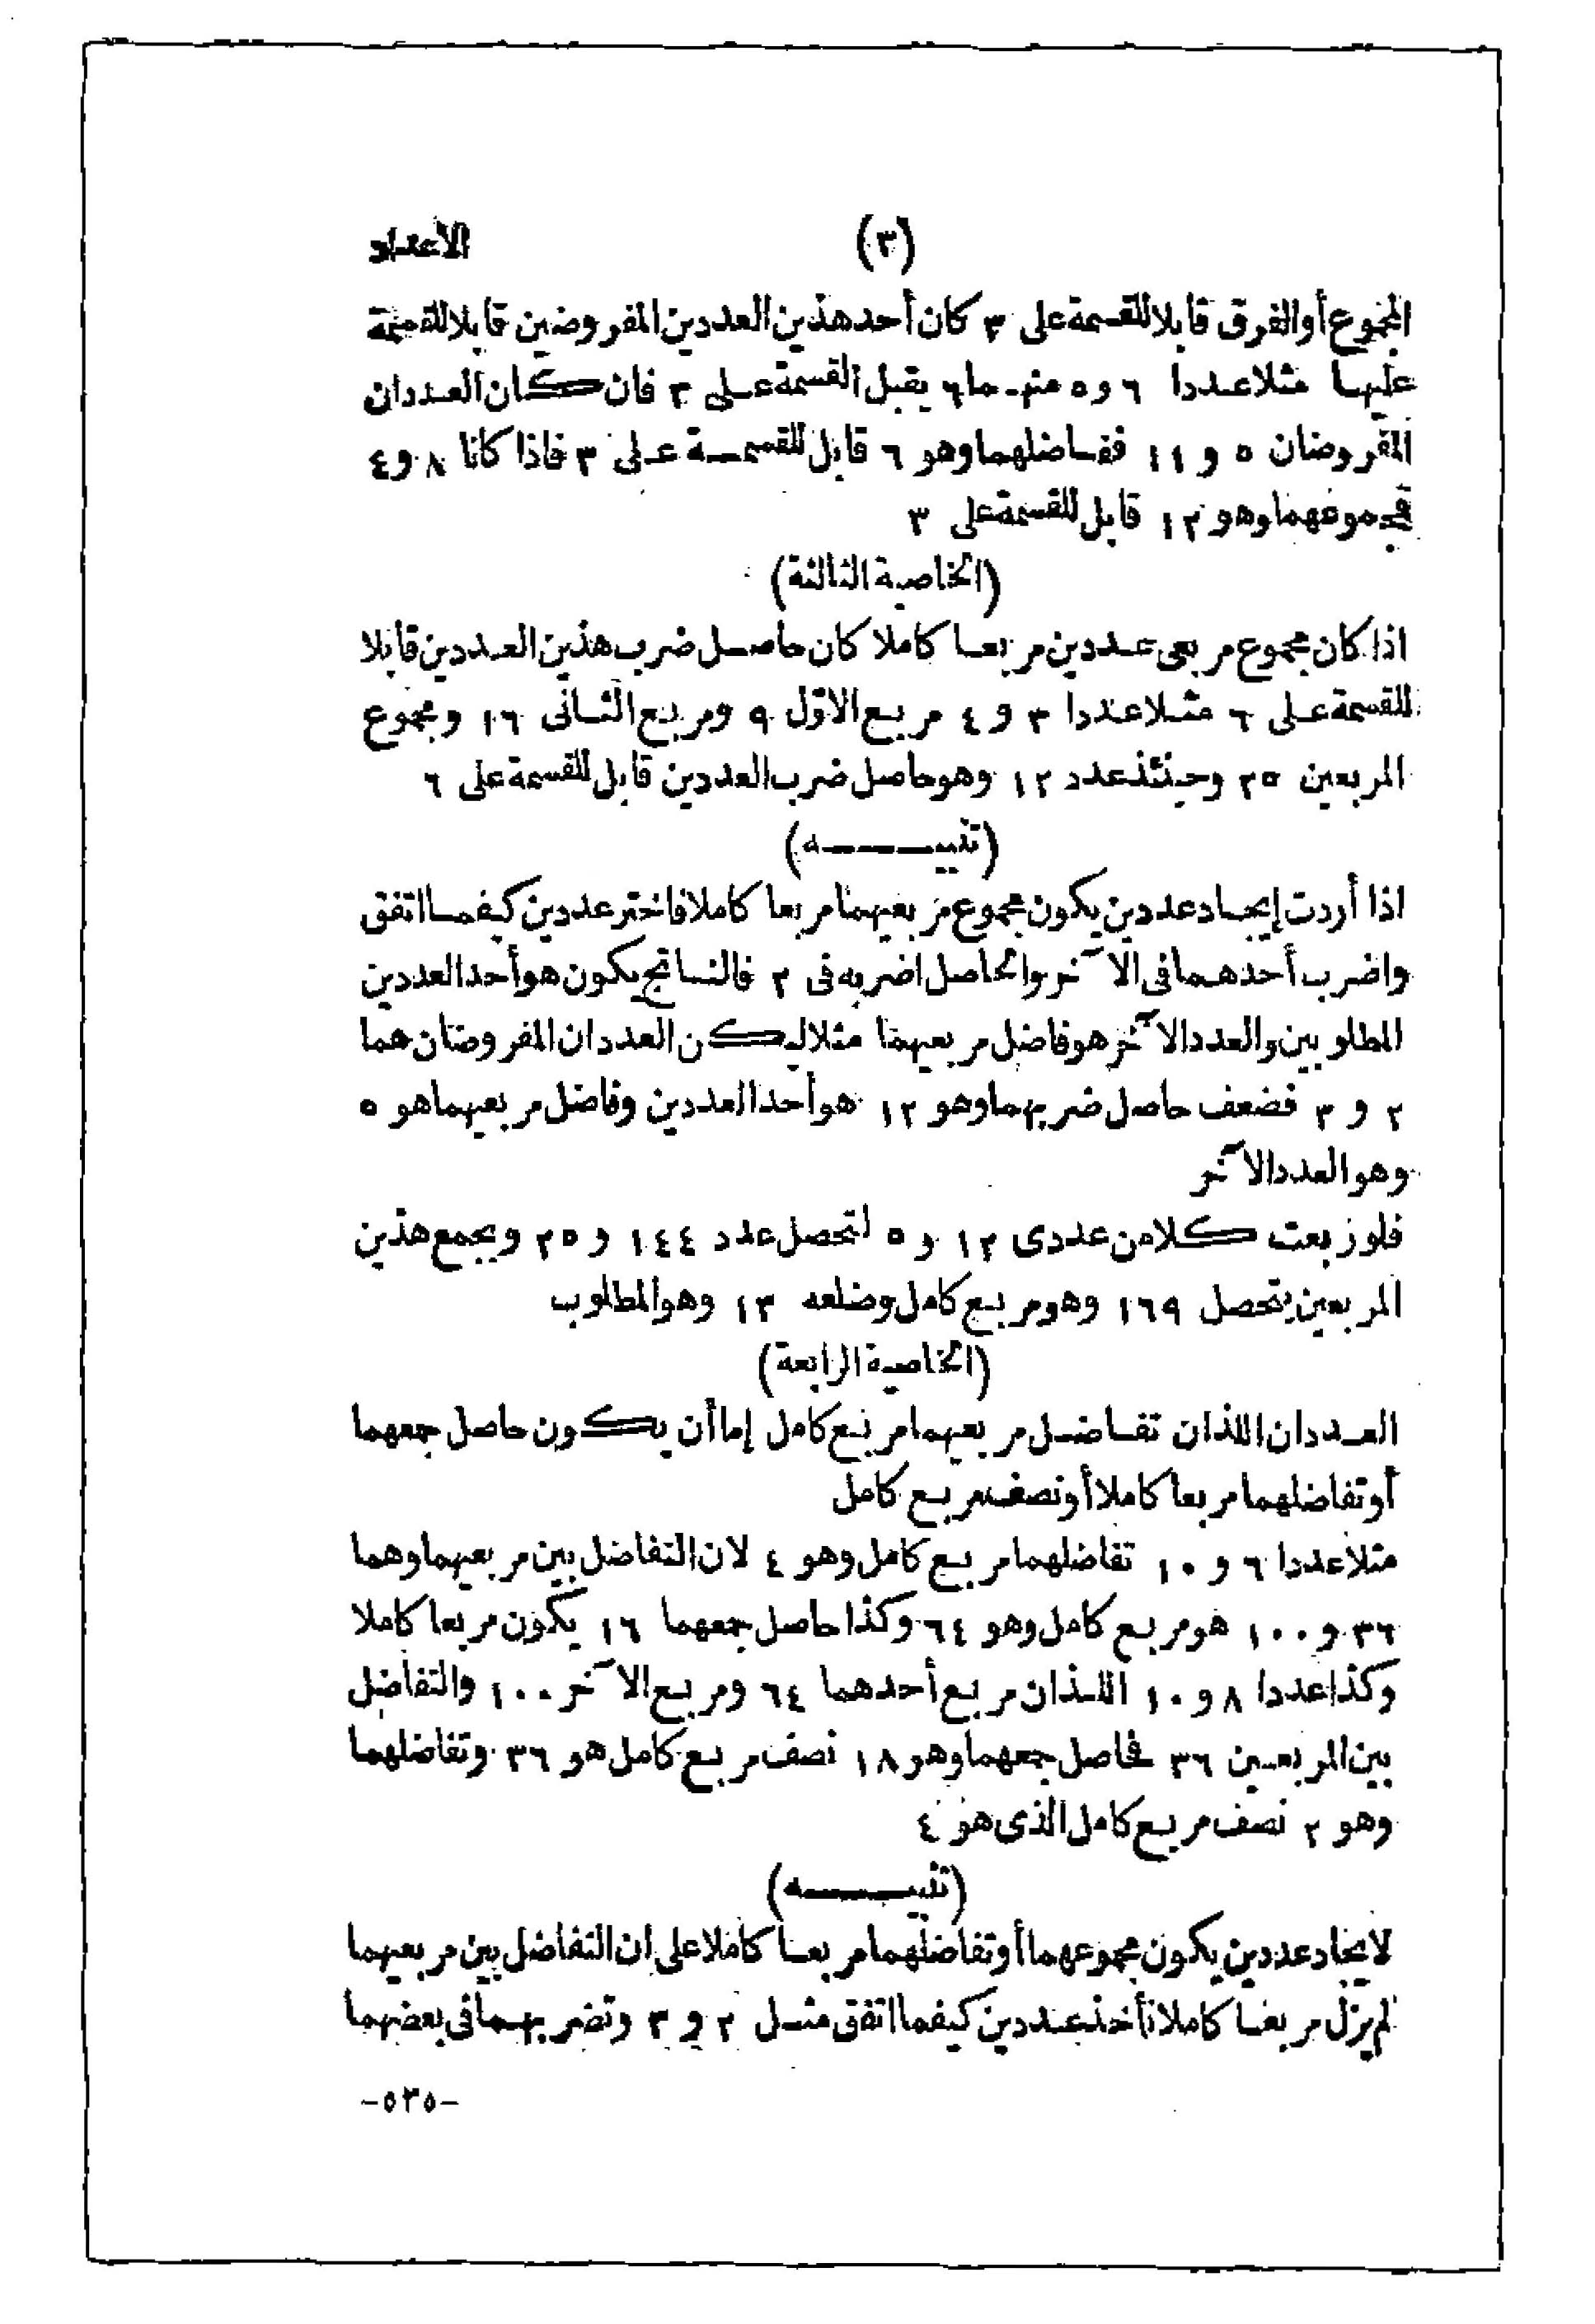 (٣)
الأعداد
المجموع أو الفرق قابلا للقسمة على ٣ كان أحد هذين العددين المفروضين قابلا للقسمة
عليها مثلا عددا ٦ و ٥ منهما ٦ يقبل القسمة على ٣ فان كان العددان
المفروضان ٥ و ١١ ففاضلهما وهو ٦ قابل للقسمة على ٣ فاذا كانا ٨ و ٤
فمجموعهما وهو ١٢ قابل للقسمة على ٣
(الخاصية الثالثة)
اذا كان مجموع مربعى عددين مربعا كاملا كان حاصل ضرب هذين العددين قابلا
للقسمة على ٦ مثلا عددا ٣ و ٤ مربع الاوّل ٩ ومربع الثانى ١٦ ومجموع
المربعين ٢٥ وحينئذ عدد ١٢ وهو حاصل ضرب العددين قابل للقسمة على ٦
(تنبيـــه)
اذا أردت إيجاد عددين يكون مجموع مربعيهما مربعا كاملا فاختر عددين كيفما اتفق
واضرب أحدهما فى الآخر والحاصل اضربه فى ٢ فالناتج يكون هو أحد العددين
المطلوبين والعدد الآخر هو فاضل مربعيهما مثلا ليكن العددان المفروضان هما
٢ و ٣ فضعف حاصل ضربهما وهو ١٢ هو أحد العددين وفاضل مربعيهما هو ٥
وهو العدد الآخر
فلو ربعت كلا من عددى ١٢ و ٥ لتحصل عدد ١٤٤ و ٢٥ وبجمع هذين
المربعين يتحصل ١٦٩ وهو مربع كامل وضلعه ١٣ وهو المطلوب
(الخاصية الرابعة)
العددان اللذان تفاضل مربعيهما مربع كامل إما أن يكون حاصل جمعهما
أو تفاضلهما مربعا كاملا أو نصف مربع كامل
مثلا عددا ٦ و ١٠ تفاضلهما مربع كامل وهو ٤ لان التفاضل بين مربعيهما وهما
٣٦ و ١٠٠ هو مربع كامل وهو ٦٤ وكذا حاصل جمعهما ١٦ يكون مربعا كاملا
وكذا عددا ٨ و ١٠ اللذان مربع أحدهما ٦٤ ومربع الآخر ١٠٠ والتفاضل
بين المربعين ٣٦ فحاصل جمعهما وهو ١٨ نصف مربع كامل هو ٣٦ وتفاضلهما
وهو ٢ نصف مربع كامل الذى هو ٤
(تنبيـــه)
لايجاد عددين يكون مجموعهما أو تفاضلهما مربعا كاملا على ان التفاضل بين مربعيهما
لم يزل مربعا كاملا نأخذ عددين كيفما اتفق مثل ٢ و ٣ وتضربهما فى بعضهما
-٥٣٥-